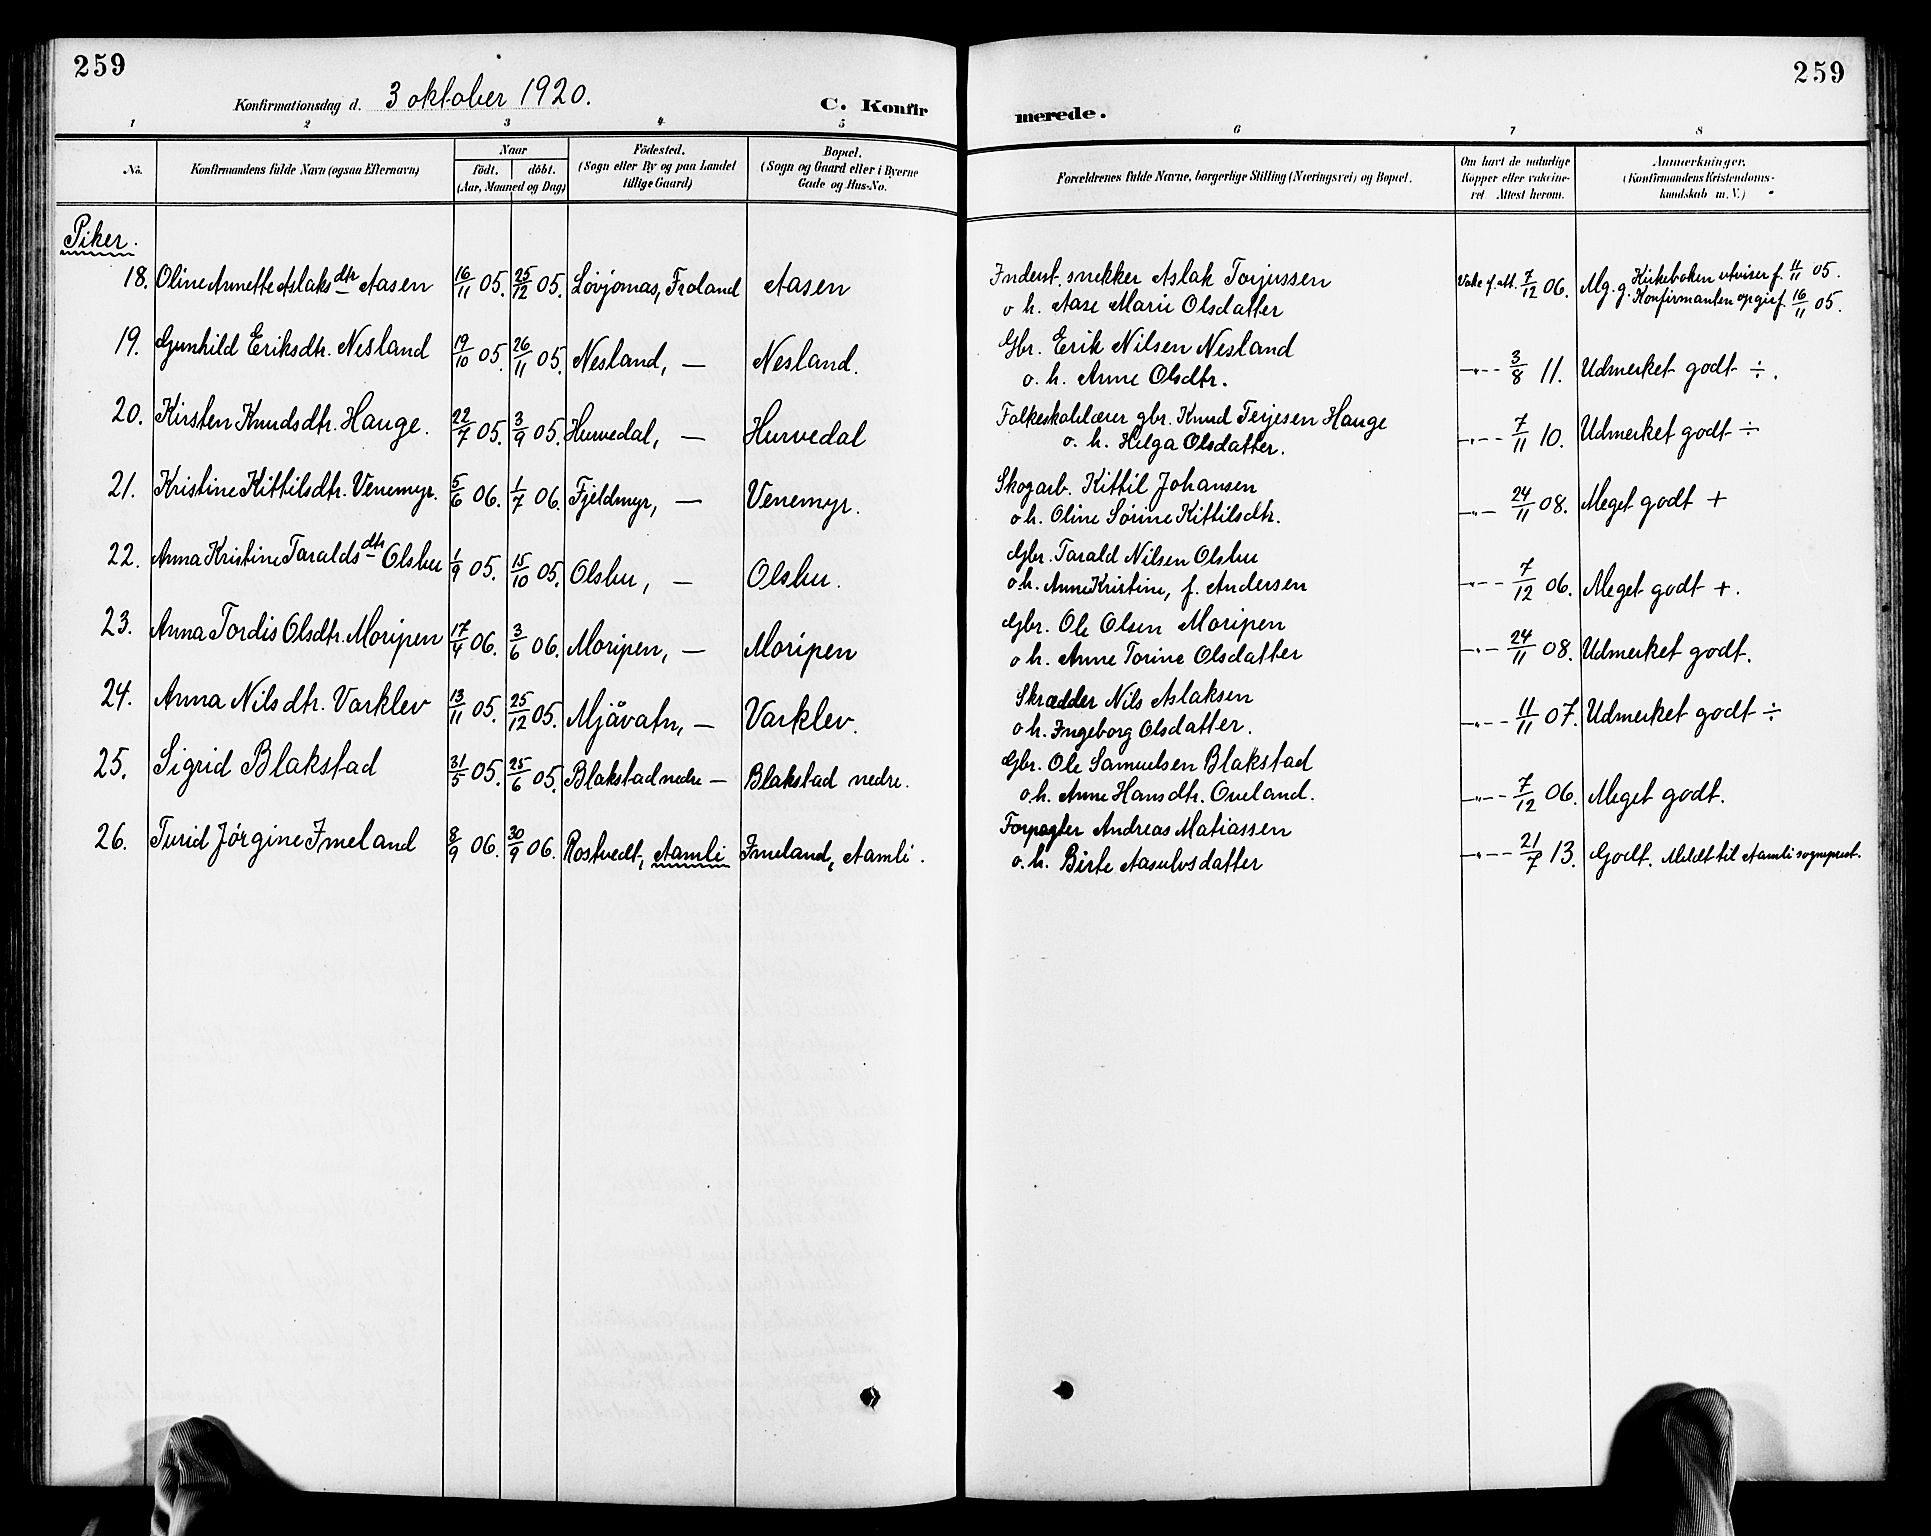 259
259
Konfirmationsdag d. 3 oktober 1920.
C. Konfirmerede.
1 2 3 4 5 6 7 8
No.
Konfirmandens fulde Navn (ogsaa Efternavn)
Naar
födt. döbt.
(Aar, Maaned og Dag)
Födested.
(Sogn eller By og paa Landet
tillige Gaard)
Bopæl.
(Sogn og Gaard eller i Byerne
Gade og Hus-No.
Forældrenes fulde Navne, borgerlige Stilling (Næringsvei) og Bopæl.
Om havt de naturlige
Kopper eller vakcine-
ret Attest herom.
Anmerkninger.
(Konfirmandens Kristendoms-
kundskab m. V.)
Piker.
18. Oline Annette Aslaksdtr Aasen 16/11 05. 25/12 05. Lövjomas, Froland Aasen
Inderst, snekker Aslak Torjussen
o h. Aase Marie Olsdatter
Vakc. f. att. 7/12 06. Mg. g. Kirkeboken utviser f. 11/11 05.
Konfirmanten opgir f. 16/11 05.
19. Gunhild Eriksdtr. Nesland 19/10 05. 26/11 05. Nesland, — Nesland.
Gbr. Erik Nilsen Nesland
o. h. Anne Olsdtr.
—"—- 3/8 11. Udmerket godt ÷.
20. Kirsten Knudsdtr. Hauge. 22/7 05. 3/9 05. Hurvedal, — Hurvedal
Folkeskolelærer gbr. Knud Terjesen Hauge
o. h. Helga Olsdatter.
—"—- 7/11 10. Udmerket godt ÷
21. Kristine Kittilsdtr. Venemyr. 5/6 06. 1/7 06. Fjeldmyr, — Venemyr.
Skogarb. Kittil Johansen
o h. Oline Sörine Kittilsdtr.
—"— 24/11 08. Meget godt +
22. Anna Kristine Taraldsdtr Olsbu 1/9 05. 15/10 05. Olsbu, — Olsbu.
Gbr. Tarald Nilsen Olsbu
o.h. Anne Kristine, f. Andersen
—"—- 7/12 06. Meget godt +.
23. Anna Tordis Olsdtr. Moripen 17/4 06. 3/6 06. Moripen, — Moripen
Gbr. Ole Olsen Moripen
o h. Anne Torine Olsdatter
—"—- 24/11 08. Udmerket godt.
24. Anna Nilsdtr. Varklev 13/11 05. 25/12 05. Mjåvatn, — Varklev.
Skrædder Nils Aslaksen
o h. Ingeborg Olsdatter.
—"—- 11/11 07. Udmerket godt ÷
25. Sigrid Blakstad 31/5 05. 25/6 05. Blakstad nedre — Blakstad nedre.
Gbr. Ole Samuelsen Blakstad
o h. Anne Hansdtr. Oveland.
—"—- 7/12 06. Meget godt.
26. Turid Jörgine Imeland 8/9 06. 30/9 06. Rostvedt, Aamli Imeland, Aamli.
Forpagter Andreas Matiassen
o. h. Birte Aasulvsdatter
—"—- 21/7 13. Godt. Meldt til Aamli sogneprest.